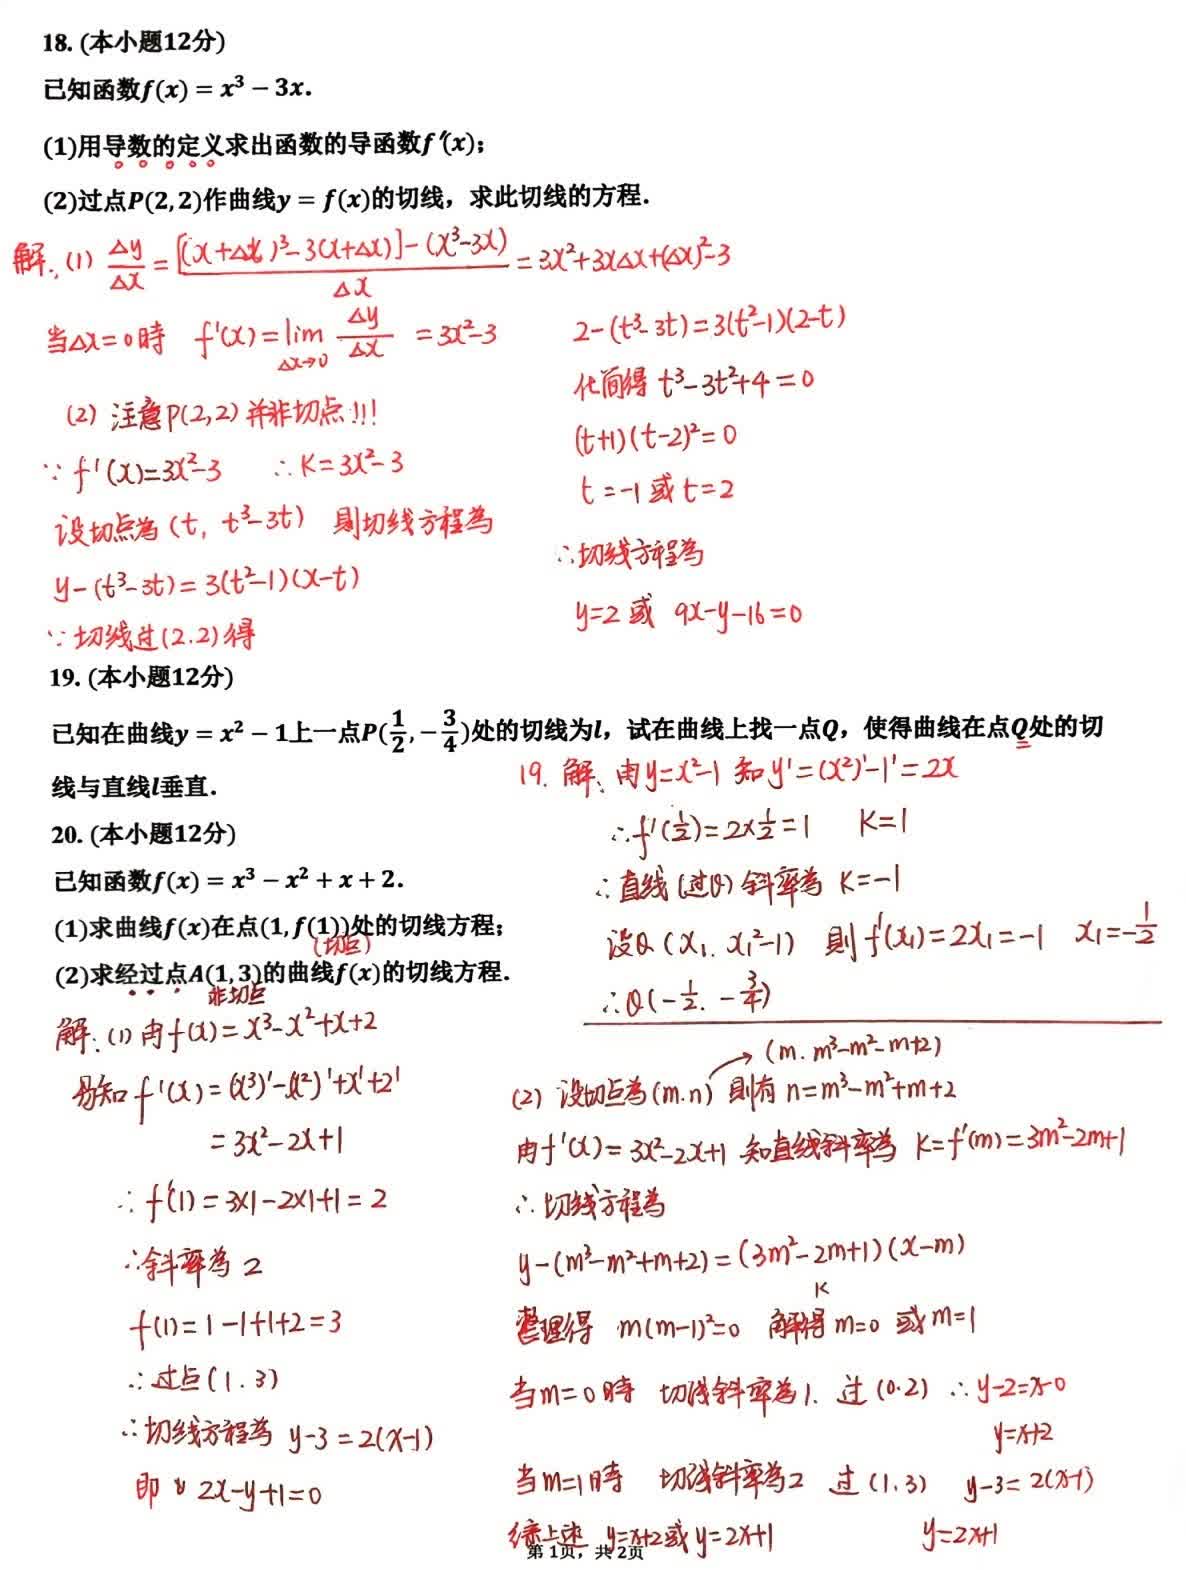 18. (本小题12分)
已知函数f(x) = x³ − 3x.
(1)用导数的定义求出函数的导函数f′(x);
(2)过点P(2,2)作曲线y = f(x)的切线，求此切线的方程.
解:(1) Δy/Δx = [(x+Δx)³-3(x+Δx)]-(x³-3x)/Δx = 3x²+3xΔx+(Δx)²-3
当Δx=0時 f'(x)=lim Δx→0 Δy/Δx =3x²-3
(2) 注意P(2,2)并非切点!!!
∵ f'(x)=3x²-3 ∴K=3x²-3
设切点為(t, t³-3t) 則切线方程為
y-(t³-3t)=3(t²-1)(x-t)
∵切线过(2.2)得
2-(t³-3t)=3(t²-1)(2-t)
化简得 t³-3t²+4=0
(t+1)(t-2)²=0
t=-1或t=2
∴切线方程為
y=2或 9x-y-16=0
19. (本小题12分)
已知在曲线y = x² − 1上一点P(1/2, −3/4)处的切线为l，试在曲线上找一点Q，使得曲线在点Q处的切
线与直线l垂直.
19. 解:由y=x²-1 知y'=(x²)'-1'=2x
∴f'(1/2)=2×1/2=1 K=1
∴直线(过Q)斜率為 K=-1
設Q(x₁, x₁²-1) 則f'(x₁)=2x₁=-1 x₁=-1/2
∴Q(-1/2. -3/4)
20. (本小题12分)
已知函数f(x) = x³ − x² + x + 2.
(1)求曲线f(x)在点(1, f(1))处的切线方程;
(切点)
(2)求经过点A(1,3)的曲线f(x)的切线方程.
非切点
解:(1)由f(x)=x³-x²+x+2
易知f'(x)=(x³)'-(x²)'+x'+2'
=3x²-2x+1
∴f'(1)=3×1-2×1+1=2
∴斜率為2
f(1)=1-1+1+2=3
∴过点(1.3)
∴切线方程為 y-3=2(x-1)
即 2x-y+1=0
(m. m³-m²-m+2)
(2) 设切点為(m.n) 則有n=m³-m²+m+2
由f'(x)=3x²-2x+1 知直线斜率為 K=f'(m)=3m²-2m+1
∴切线方程為
y-(m³-m²+m+2)=(3m²-2m+1)(x-m)
K
整理得 m(m-1)²=0 解得m=0或m=1
当m=0時 切线斜率為1. 过(0.2) ∴y-2=x-0
y=x+2
当m=1時 切线斜率為2 过(1.3) y-3=2(x-1)
y=2x+1
综上述 y=x+2或y=2x+1
第 1页，共 2页